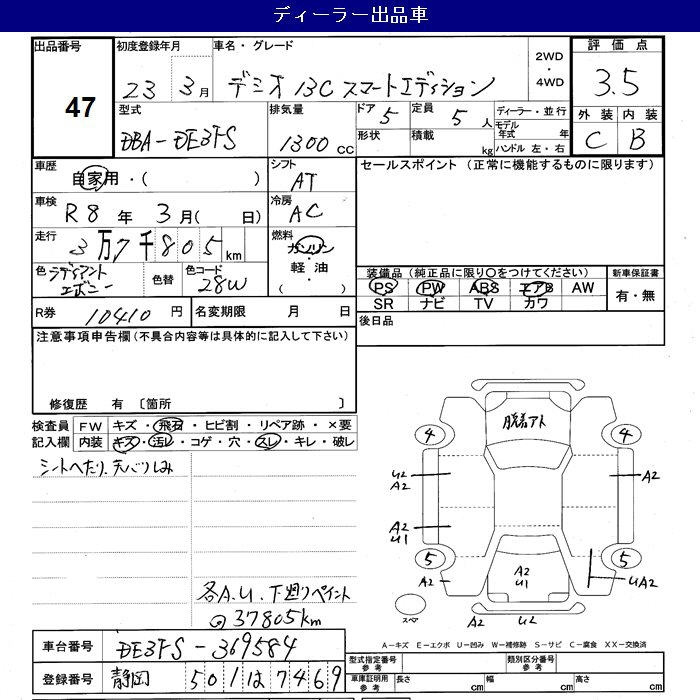 ディーラー出品車
出品番号
47
初度登録年月
23 3月
車名・グレード
デミオ 13C スマートエディション
2WD
・
4WD
評価点
3.5
外装 内装
C B
型式
DBA-DE3FS
排気量
1300 CC
ドア
5
定員
5 人
形状
積載
kg
ディーラー・並行
モデル
年式 年
ハンドル 左・右
車歴
自家用・( )
シフト
AT
セールスポイント (正常に機能するものに限ります)
車検
R8 年 3月( 日)
冷房
AC
走行
3万7千805km
燃料
ガソリン
・
軽・油
( )
色
ラディアント
エボニー
色替
色コード
28W
装備品(純正品に限り○をつけてください)
PS PW ABS エアB AW
SR ナビ TV カワ
新車保証書
有・無
R券 10410 円
名変期限 月 日
後日品
注意事項申告欄(不具合内容等は具体的に記入して下さい)
修復歴 有 〔箇所 〕
検査員
記入欄
FW キズ・飛石・ヒビ割・リペア跡・×要
内装 キズ・汚レ・コゲ・穴・スレ・キレ・破レ
シートへたり、天バリしみ
各A.U.下廻りペイント
37805km
脱着アト
4 4
U2
A2
A2
A2
U1
5 5
A2
A2
U1
UA2
スペア
A2 U2
A-キズ E-エクボ U-凹み W-補修跡 S-サビ C-腐食 XX-交換済
車台番号 DE3FS-369584
登録番号 静岡 501 は 7469
型式指定番号
参考
類別区分番号
参考
車庫証明用
参考
長さ cm 幅 cm 高さ cm